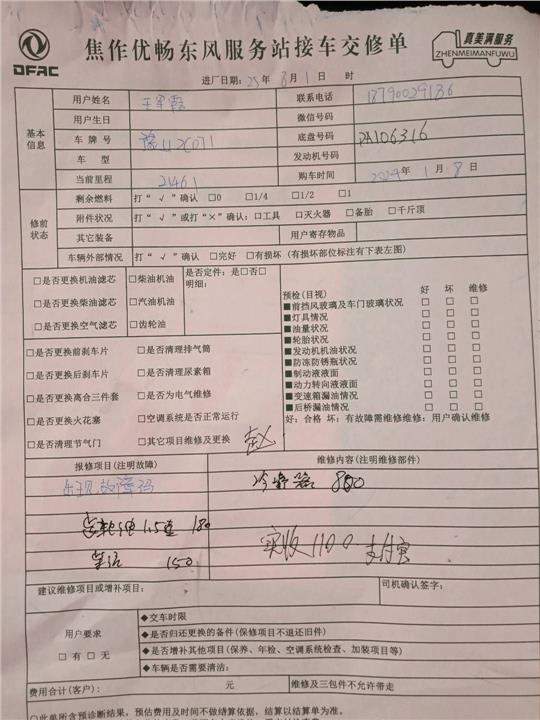 DFAC
焦作优畅东风服务站接车交修单
真美满服务
ZHENMEIMANFUWU
进厂日期：25年 8月 1日 时
基本信息
用户姓名 王军霞 联系电话 18790029136
用户生日 微信号码
车牌号 底盘号码 DA106316
车型 发动机号码
当前里程 21461 购车时间 2024年 1月 8日
修前状态
剩余燃料 打“√”确认 □0 □1/4 □1/2 □1
附件状况 打“√”或打“×”确认：□工具 □灭火器 □备胎 □千斤顶
其它装备 用户寄存物品
车辆外部情况 打“√”确认 □完好 □有损坏（有损坏部位标注有下表左图）
□是否更换机油滤芯 □柴油机油 是否定件：是□否□
明细：
□是否更换柴油滤芯 □汽油机油
□是否更换空气滤芯 □齿轮油
预检(目视) 好 坏 维修
■前挡风玻璃及车门玻璃状况 □ □ □
■灯具情况 □ □ □
■油量状况 □ □ □
■轮胎状况 □ □ □
■发动机机油状况 □ □ □
■防冻防锈瓶状况 □ □ □
■制动液液面 □ □ □
■动力转向液液面 □ □ □
■变速箱漏油情况 □ □ □
■后桥漏油情况 □ □ □
好：合格 坏：有故障需维修维修：用户确认维修
□是否更换前刹车片 □是否清理排气筒
□是否更换后刹车片 □是否清理尿素箱
□是否更换离合三件套 □是否为电气维修
□是否更换火花塞 □空调系统是否正常运行
□是否清理节气门 □其它项目维修及更换
赵
报修项目(注明故障) 维修内容(注明维修部件)
出现故障码 冷凝器 800
齿轮油 1.5壶 180
150
实收1100 支付宝
建议维修项目或增补项目： 司机确认签字：
用户要求
□有 □无
◆交车时限
◆是否归还更换的备件(保修项目不退还旧件)
◆是否增补其他项目(保养、年检、空调系统检查、加装项目等)
◆车辆是否需要清洁：
费用合计(客户)： 元 维修及三包件不允许带走
◇此单所含预诊断结果，预估费用及时间不做结算依据，结算以结算单为准。